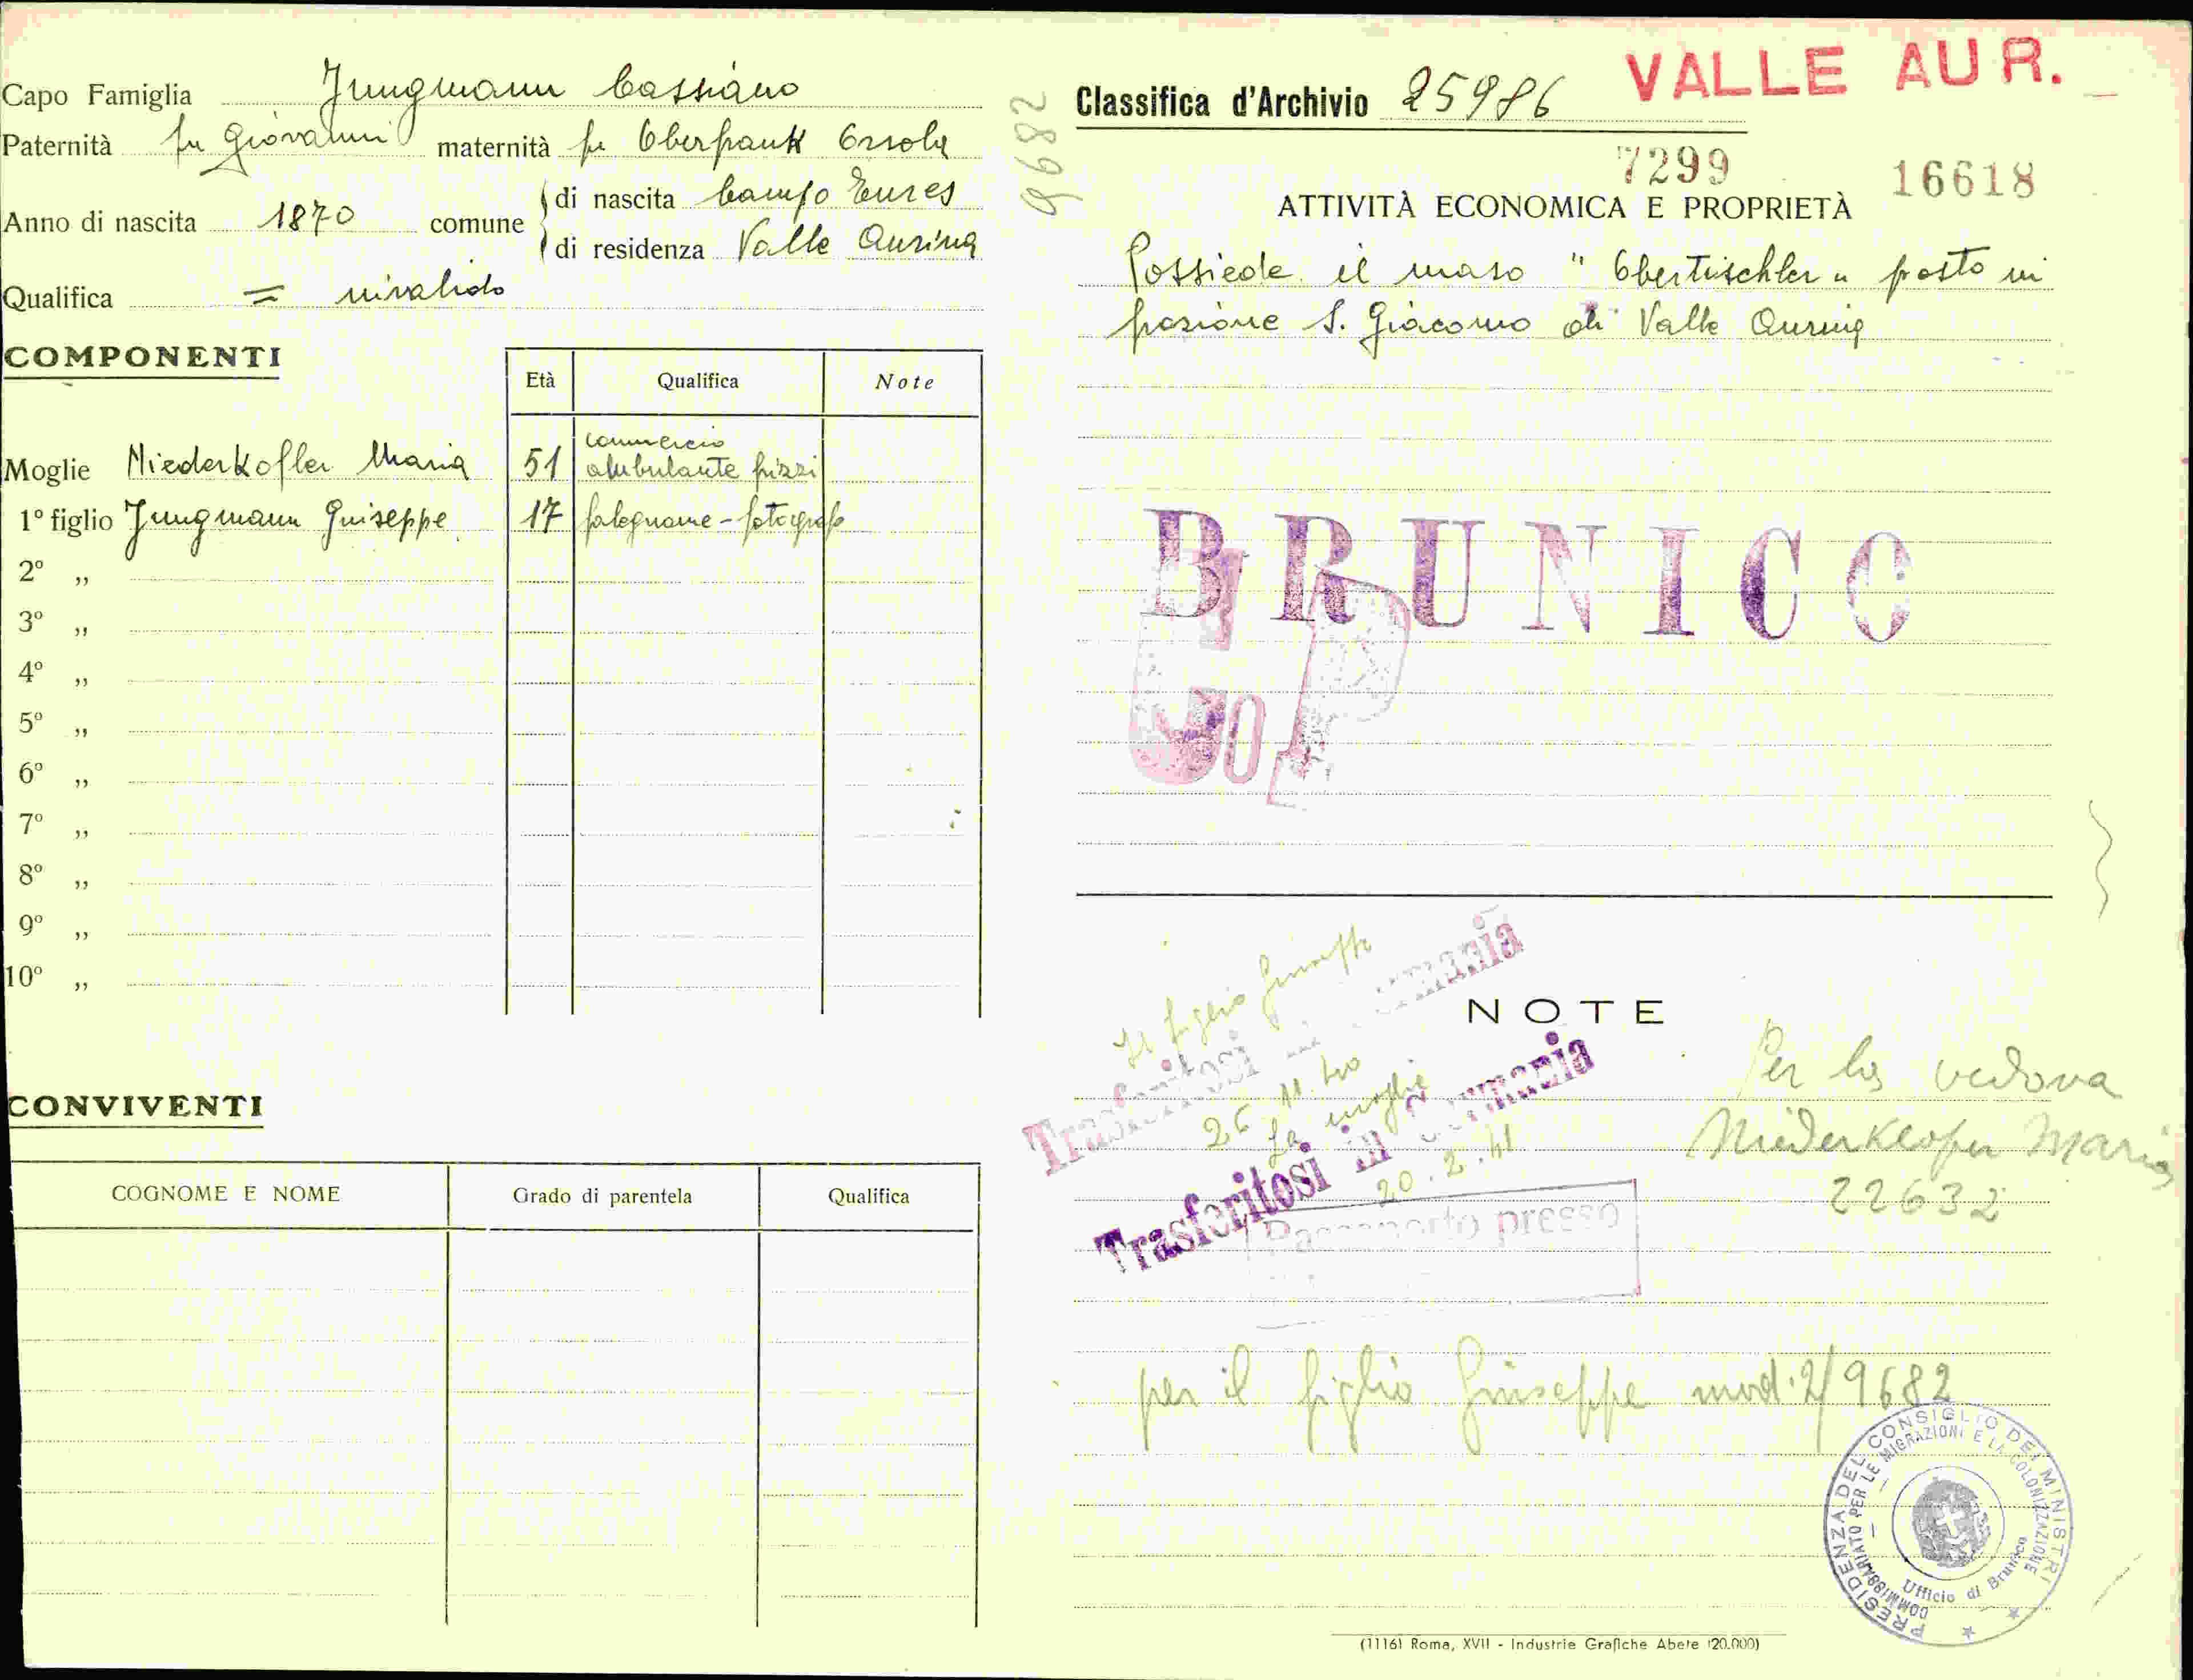 Capo Famiglia Jungmann Cassiano
Paternità fu Giovanni maternità fu Oberfrank Orsola
Anno di nascita 1870 comune
di nascita Campo Tures
di residenza Valle Aurina
Qualifica = invalido
COMPONENTI
Età Qualifica Note
Moglie Niederkofler Maria 51 commercio ambulante pizzi
1º figlio Jungmann Guiseppe 17 falegname - fotografo
2º „
3º „
4º „
5º „
6º „
7º „
8º „
9º „
10º „
CONVIVENTI
COGNOME E NOME Grado di parentela Qualifica
9682
Classifica d'Archivio 25986
VALLE AUR.
7299
16618
ATTIVITÀ ECONOMICA E PROPRIETÀ
Possiede il maso "Obertischler" posto in
frazione S. Giacomo di Valle Aurina
BRUNICO
NOTE
Il figlio Giuseppe
Trasferitosi in Germania
26.11.40
La moglie
Trasferitosi in Germania
20.2.41
Passaporto presso
Per la vedova
Niederkofler Maria
22632
per il figlio Giuseppe mod. 2/9682
PRESIDENZA DEL CONSIGLIO DEI MINISTRI
COMMISSARIATO PER LE MIGRAZIONI E LA COLONIZZAZIONE
Ufficio di Brunico
(1116) Roma, XVII - Industrie Grafiche Abete (20.000)